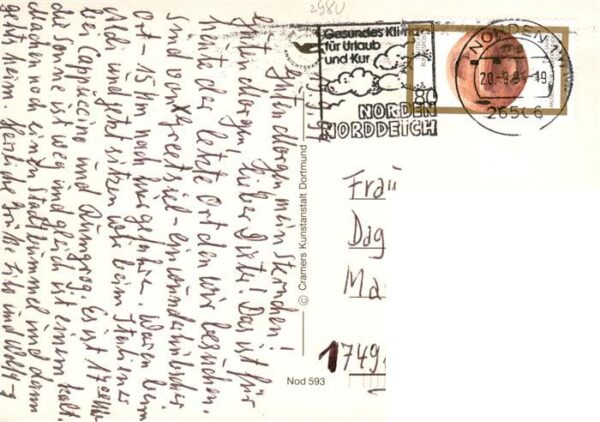 2980
Gesundes Klima
für Urlaub
und Kur
NORDEN
NORDDEICH
NORDEN 1
20.-9.94-19
26506
© Cramers Kunstanstalt Dortmund
Nod 593
Frau
Dag
Ma
1749
Guten Morgen mein Sternchen!
Guten Morgen, lieber Dieter! Das ist für
heute der letzte Ort den wir besuchen.
Sind von Greetsiel - ein wunderhübscher
Ort - 15 km nach hier gefahren. Waren beim
Aldi und jetzt sitzen wir beim Italiener
bei Cappuccino und Rumgrog. Es ist 17 00 Uhr
die Sonne ist weg und gleich ist einem kalt.
Machen noch einen Stadtbummel und dann
geht's heim. Herzliche Grüße